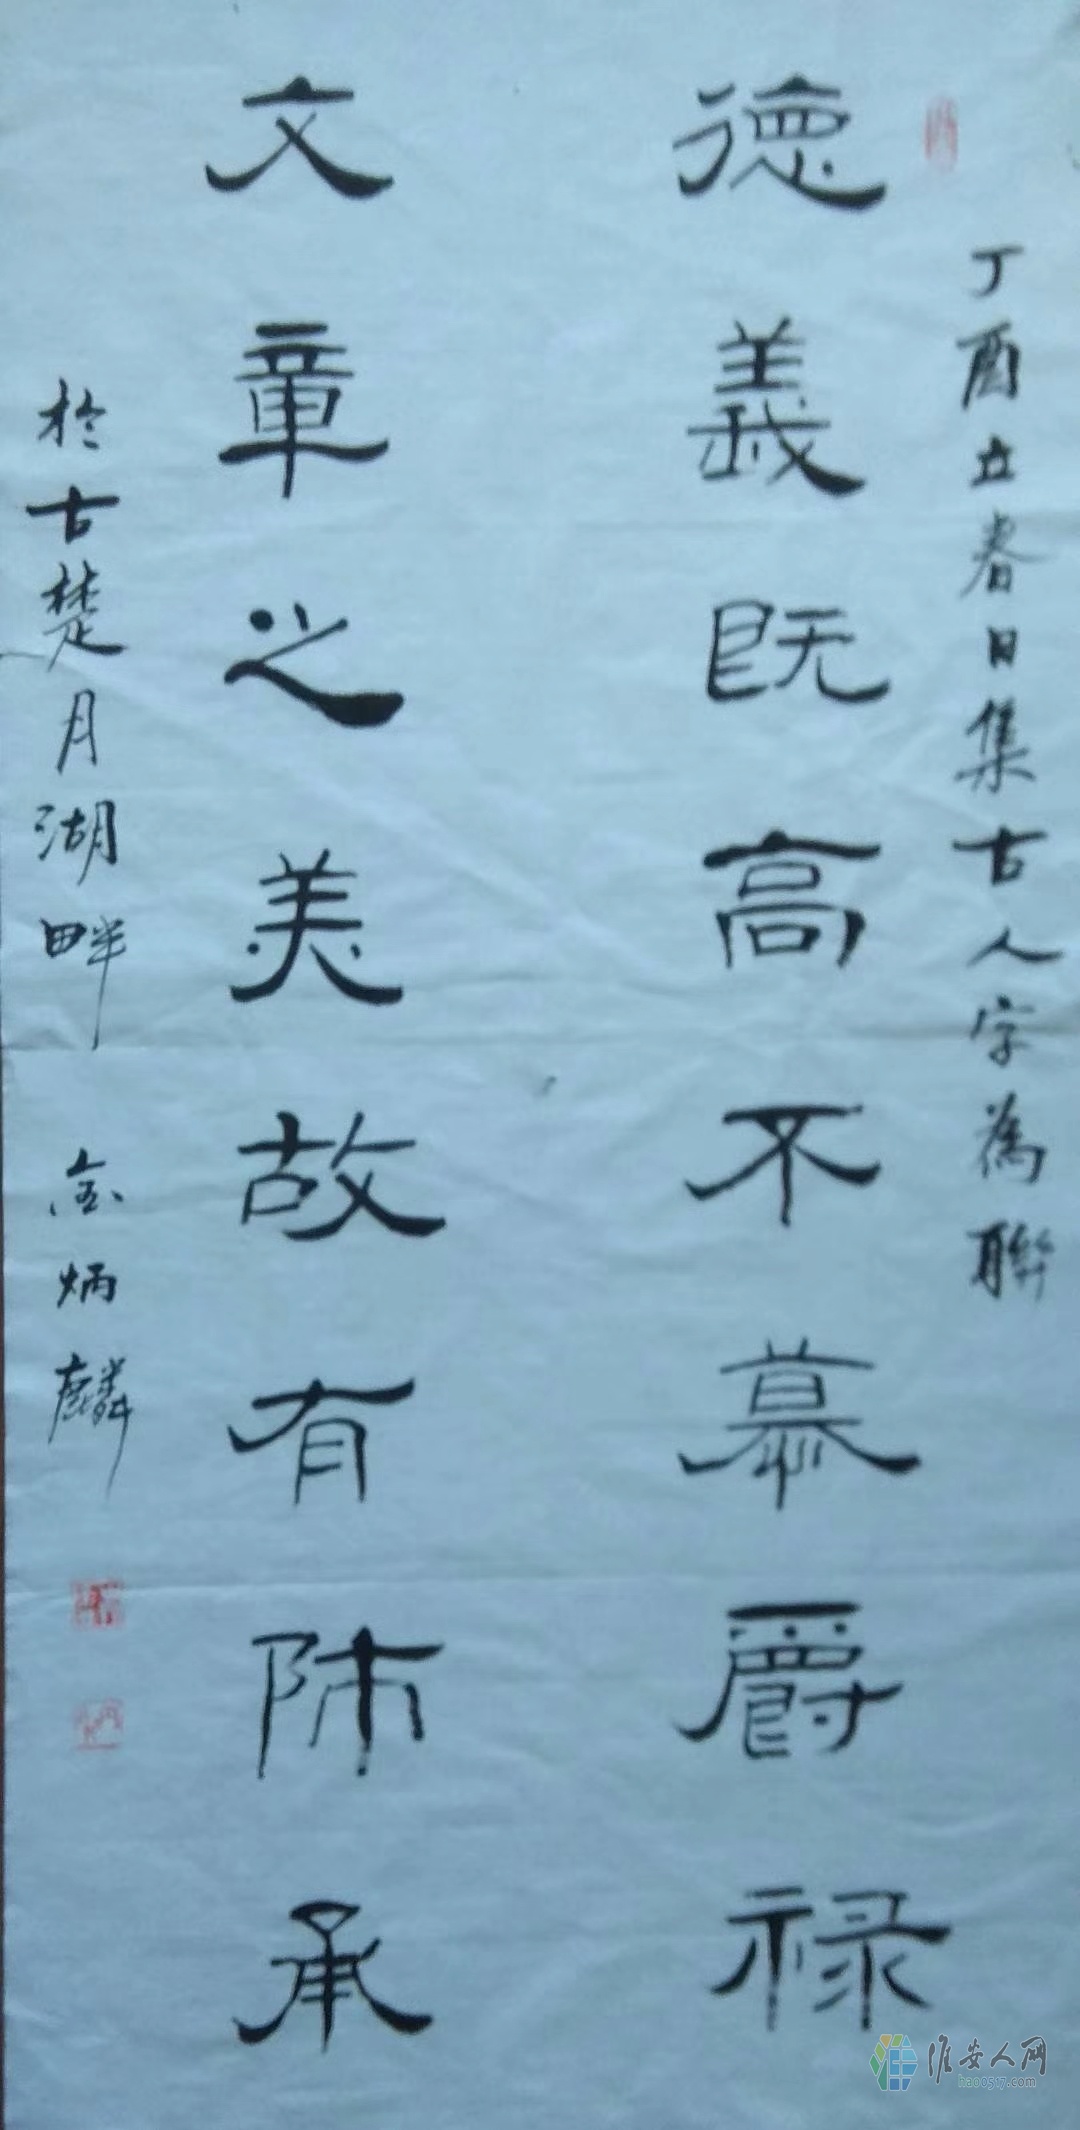 丁酉立春日集古人字為聯
德義既高不慕爵禄
文章之美故有師承
於古楚月湖畔 金炳麟
淮安人网
hao0517.com